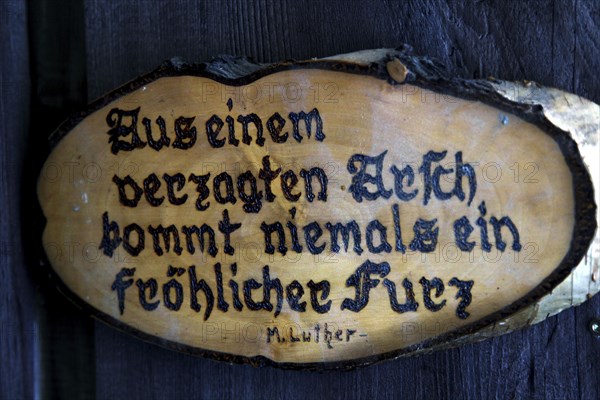 Aus einem
verzagten Arsch
kommt niemals ein
fröhlicher Furz
M. Luther